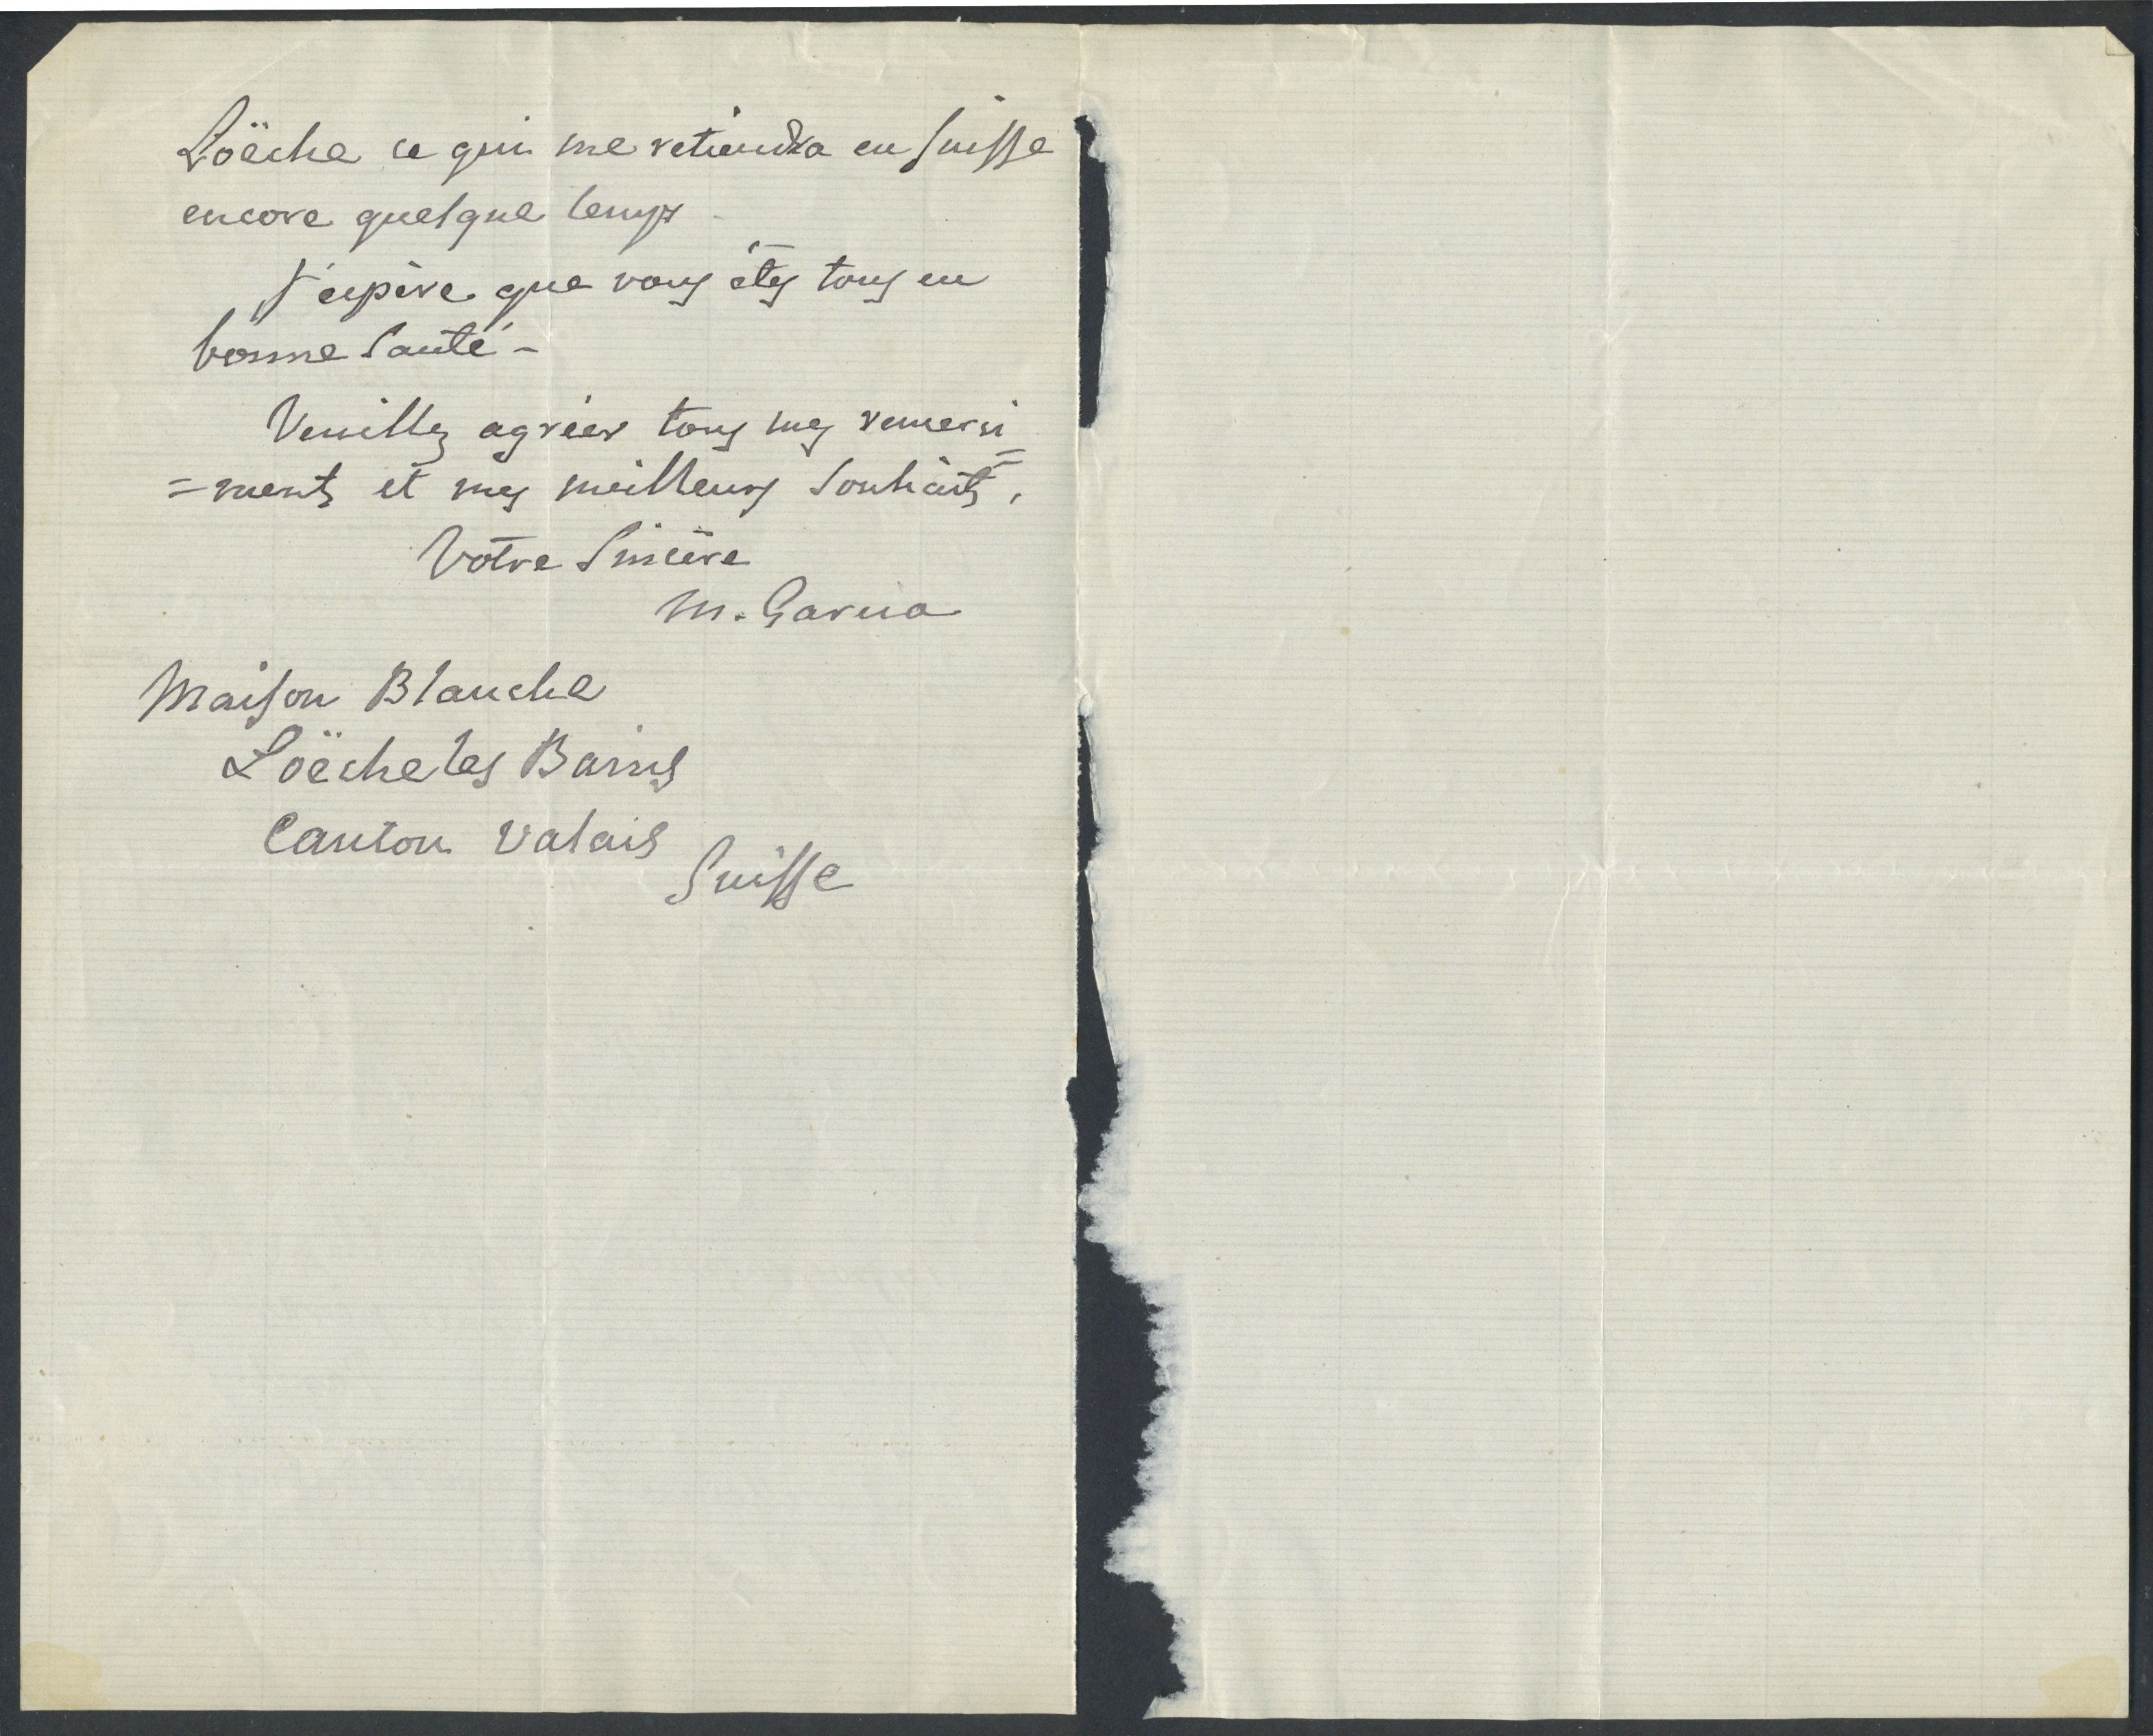 Loëche ce qui me retiendra en Suisse
encore quelque temps.
J'espère que vous êtes tous en
bonne Santé -
Veuillez agréer tous mes remerci
=ments et mes meilleurs Souhaits,
Votre Sincère
M. Garcia
Maison Blanche
Loëche les Bains
Canton Valais
Suisse